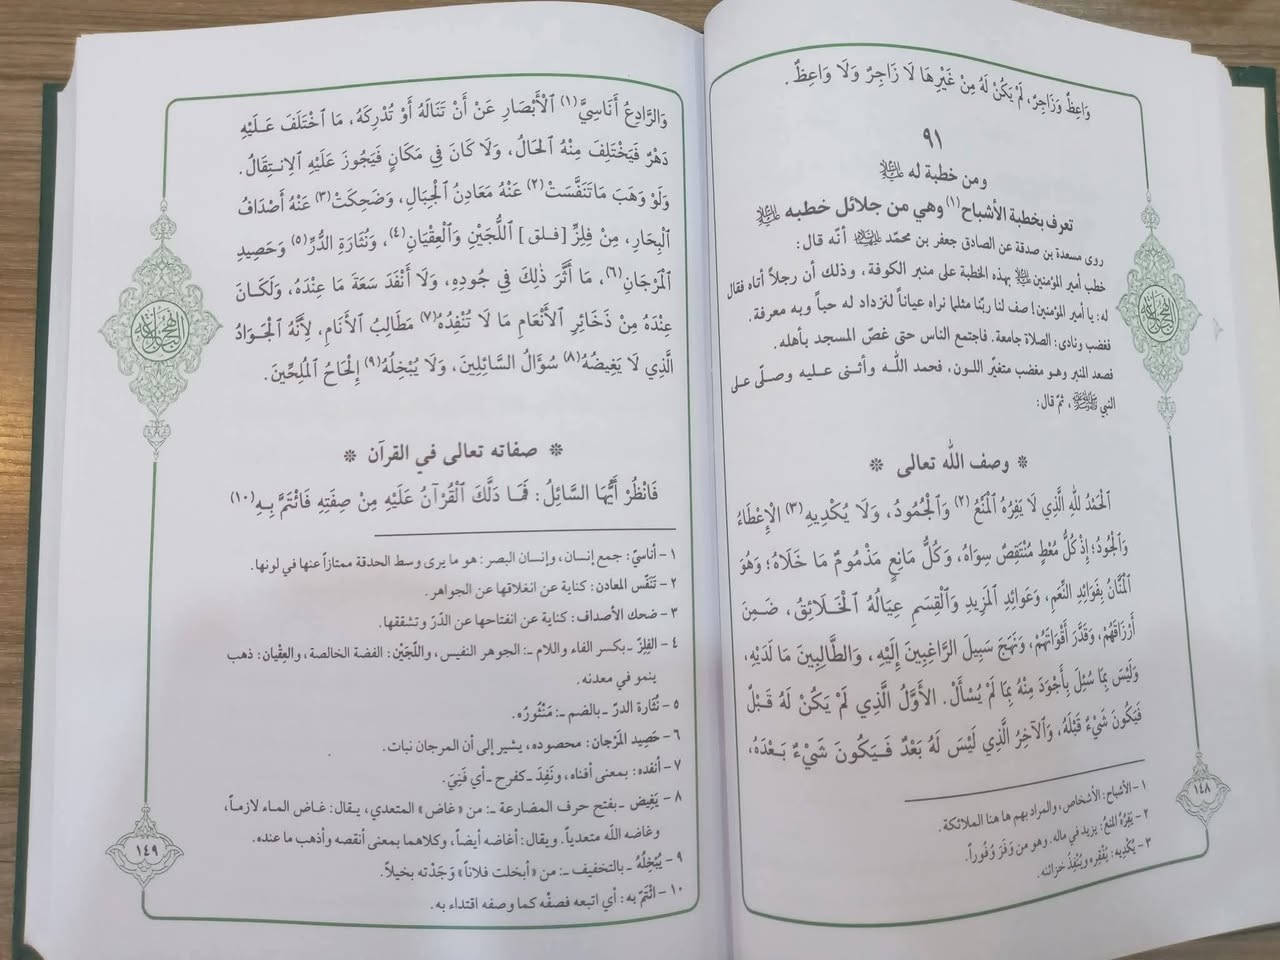 وَاعِظٌ وَزَاجِرٌ، لَمْ يَكُنْ لَهُ مِنْ غَيْرِهَا لَا زَاجِرٌ وَلَا وَاعِظٌ.
٩١
ومن خطبة له عليه السلام
تعرف بخطبة الأشباح(١) وهي من جلائل خطبه عليه السلام
روى مسعدة بن صدقة عن الصادق جعفر بن محمّد أنّه قال:
خطب أمير المؤمنين بهذه الخطبة على منبر الكوفة، وذلك أن رجلاً أتاه فقال
له: يا أمير المؤمنين! صف لنا ربّنا مثلما نراه عياناً لنزداد له حباً وبه معرفة.
فغضب ونادى: الصلاة جامعة. فاجتمع الناس حتى غصّ المسجد بأهله.
فصعد المنبر وهو مغضب متغيّر اللـون، فحمد الله وأثنى عليه وصلّى على
النبي ﷺ، ثمّ قال:
❊ وصف الله تعالى ❊
الْحَمْدُ للهِ الَّذِي لَا يَفِرُهُ الْمَنْعُ(٢) وَالْجُمُودُ، وَلَا يُكْدِيهِ(٣) الْإِعْطَاءُ
وَالْجُودُ؛ إِذْ كُلُّ مُعْطٍ مُنْتَقِصٌ سِوَاهُ، وَكُلُّ مَانِعٍ مَذْمُومٌ مَا خَلَاهُ؛ وَهُوَ
الْمَنَّانُ بِفَوَائِدِ النِّعَمِ، وَعَوَائِدِ الْمَزِيدِ وَالْقِسَمِ عِيَالُهُ الْخَلَائِقُ، ضَمِنَ
أَرْزَاقَهُمْ، وَقَدَّرَ أَقْوَاتَهُمْ، وَنَهَجَ سَبِيلَ الرَّاغِبِينَ إِلَيْهِ، وَالطَّالِبِينَ مَا لَدَيْهِ،
وَلَيْسَ بِمَا سُئِلَ بِأَجْوَدَ مِنْهُ بِمَا لَمْ يُسْأَلْ. الأَوَّلُ الَّذِي لَمْ يَكُنْ لَهُ قَبْلٌ
فَيَكُونَ شَيْءٌ قَبْلَهُ، وَالْآخِرُ الَّذِي لَيْسَ لَهُ بَعْدٌ فَيَكُونَ شَيْءٌ بَعْدَهُ،
١ – الأشباح: الأشخاص، والمراد بهم ها هنا الملائكة.
٢ – يَفِرُهُ المنعُ: يزيد في ماله. وهو من وَفَرَ وُفُوراً.
٣ – يُكْدِيه: يُفْقِره ويُنْفِدُ خزائنه.
١٤٨
وَالرَّادِعُ أَنَاسِيَّ(١) الْأَبْصَارِ عَنْ أَنْ تَنَالَهُ أَوْ تُدْرِكَهُ، مَا اخْتَلَفَ عَلَيْهِ
دَهْرٌ فَيَخْتَلِفَ مِنْهُ الْحَالُ، وَلَا كَانَ فِي مَكَانٍ فَيَجُوزَ عَلَيْهِ الِانْتِقَالُ.
وَلَوْ وَهَبَ مَا تَنَفَّسَتْ(٢) عَنْهُ مَعَادِنُ الْجِبَالِ، وَضَحِكَتْ(٣) عَنْهُ أَصْدَافُ
الْبِحَارِ، مِنْ فِلِزِّ [فلق] اللُّجَيْنِ وَالْعِقْيَانِ(٤)، وَنُثَارَةِ الدُّرِّ(٥) وَحَصِيدِ
الْمَرْجَانِ(٦)، مَا أَثَّرَ ذٰلِكَ فِي جُودِهِ، وَلَا أَنْفَدَ سَعَةَ مَا عِنْدَهُ، وَلَكَانَ
عِنْدَهُ مِنْ ذَخَائِرِ الْأَنْعَامِ مَا لَا تُنْفِدُهُ(٧) مَطَالِبُ الْأَنَامِ، لِأَنَّهُ الْجَوَادُ
الَّذِي لَا يَغِيضُهُ(٨) سُؤَالُ السَّائِلِينَ، وَلَا يُبْخِلُهُ(٩) إِلْحَاحُ الْمُلِحِّينَ.
❊ صفاته تعالى في القرآن ❊
فَانْظُرْ أَيُّهَا السَّائِلُ: فَمَا دَلَّكَ الْقُرْآنُ عَلَيْهِ مِنْ صِفَتِهِ فَائْتَمَّ بِهِ(١٠)
١ – أناسيّ: جمع إنسان، وإنسان البصر: هو ما يرى وسط الحدقة ممتازاً عنها في لونها.
٢ – تَنَفّس المعادن: كناية عن انفلاقها عن الجواهر.
٣ – ضحك الأصداف: كناية عن انفتاحها عن الدّرّ وتشققها.
٤ – الفِلِزّ ـ بكسر الفاء واللام ـ: الجوهر النفيس، واللّجَيْن: الفضة الخالصة، والعِقْيان: ذهب
ينمو في معدنه.
٥ – نُثارة الدرّ ـ بالضم ـ: مَنْثُورُه.
٦ – حَصِيد المَرْجان: محصوده، يشير إلى أن المرجان نبات.
٧ – أنفده: بمعنى أفناه، ونَفِدَ ـ كفرح ـ أي فَنِيَ.
٨ – يَغِيض ـ بفتح حرف المضارعة ـ: من «غاض» المتعدي، يـقال: غـاض المـاء لازمـاً،
وغاضه الله متعدياً. ويقال: أغاضه أيضاً، وكلاهما بمعنى أنقصه وأذهب ما عنده.
٩ – يُبْخِلُهُ ـ بالتخفيف ـ: من «أبخلت فلاناً» وَجَدْته بخيلاً.
١٠ – ائْتَمّ به: أي اتبعه فصفْه كما وصفه اقتداء به.
١٤٩